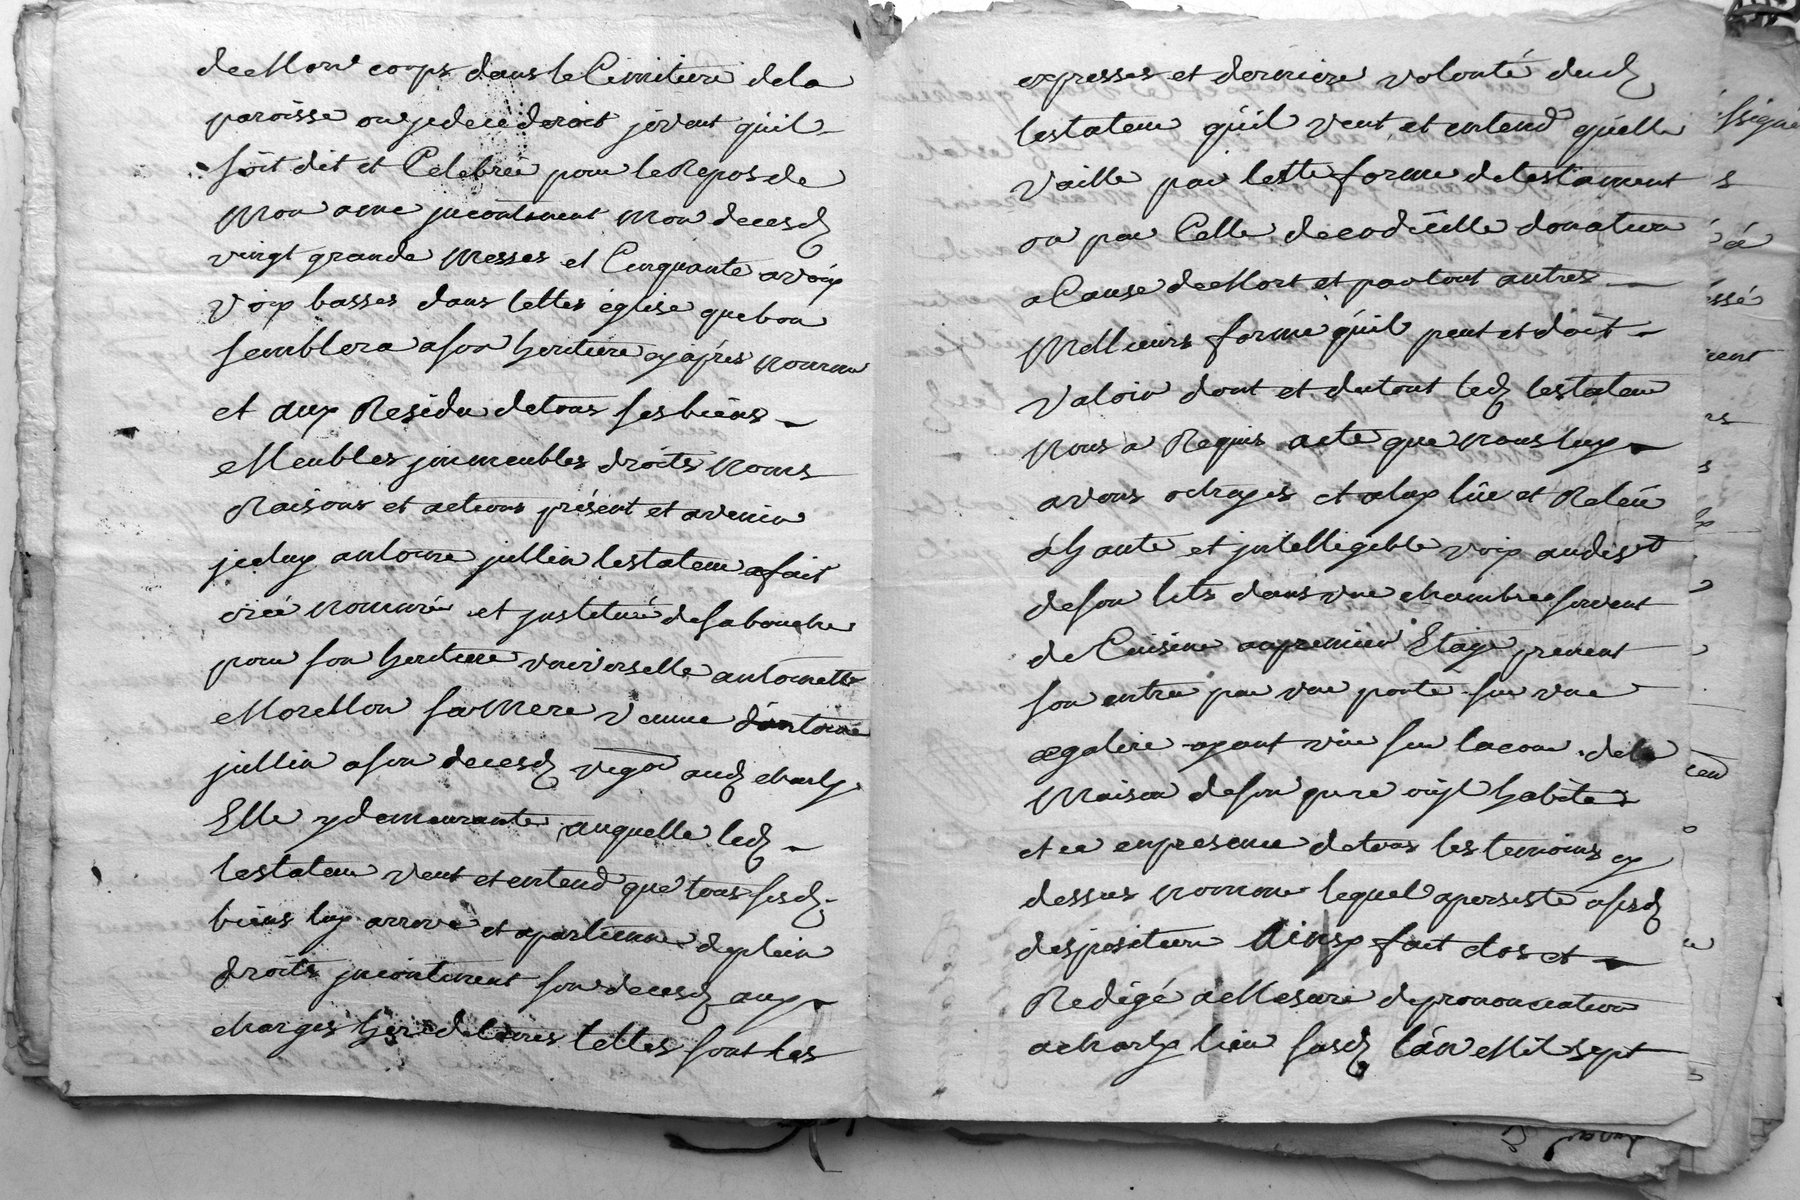 de Mon corps dans le Cimitiere de la
paroisse ou je decederoit je veut quil
soit dit et Celebrée pour le Repos de
Mon ame jncontinent Mon decesd
vingt grande Messes et Cinquante a voix
voix basses dans telles église que bon
semblera a son heritiere cy après nommée
et aux Residu de tous ses biens
Meubles jmmeubles droits Noms
Raisons et actions présent et avenir
jceluy antoine jullin testateur a fait
creé nommée et jnstitué de sa bouche
pour son heritiere vniverselle antoinette
Morellon sa Mere veuve d'antoine
jullin a son decesd vigon aud charly
Elle y demeurante auquelle led
testateur veut et entend que tous sesd
biens luy arrive et apartienne de plein
droits jncontinent son decesd aux
charges hereditaires telles sont les
expresses et derniere volonté dud
testateur qu'il veut et entend quelle
vaille par teste forme de testament
ou par Celle de codicille donation
a Cause de Mort et par tout autres
Melleurs forme qu'il peut et doit
valoir dont et du tout led testateur
Nous a Requis acte que nous luy
avons octroyes et a luy lûe et Relûe
à haute et jntelligible voix au dist
de son lits dans vne chambre servent
de Cuisine au premier Etage prenent
son entrée par vne porte sur vne
galire ayant vûe sur la cour de la
Maison de son pere oû jl habite
et ce en presence de tous les temoins cy
dessus nomme lequel a persisté a sesd
disposition Ainsy fait clos et
Redigé a Mesure de prononciation
a charly lieu susd l'an Mil sept